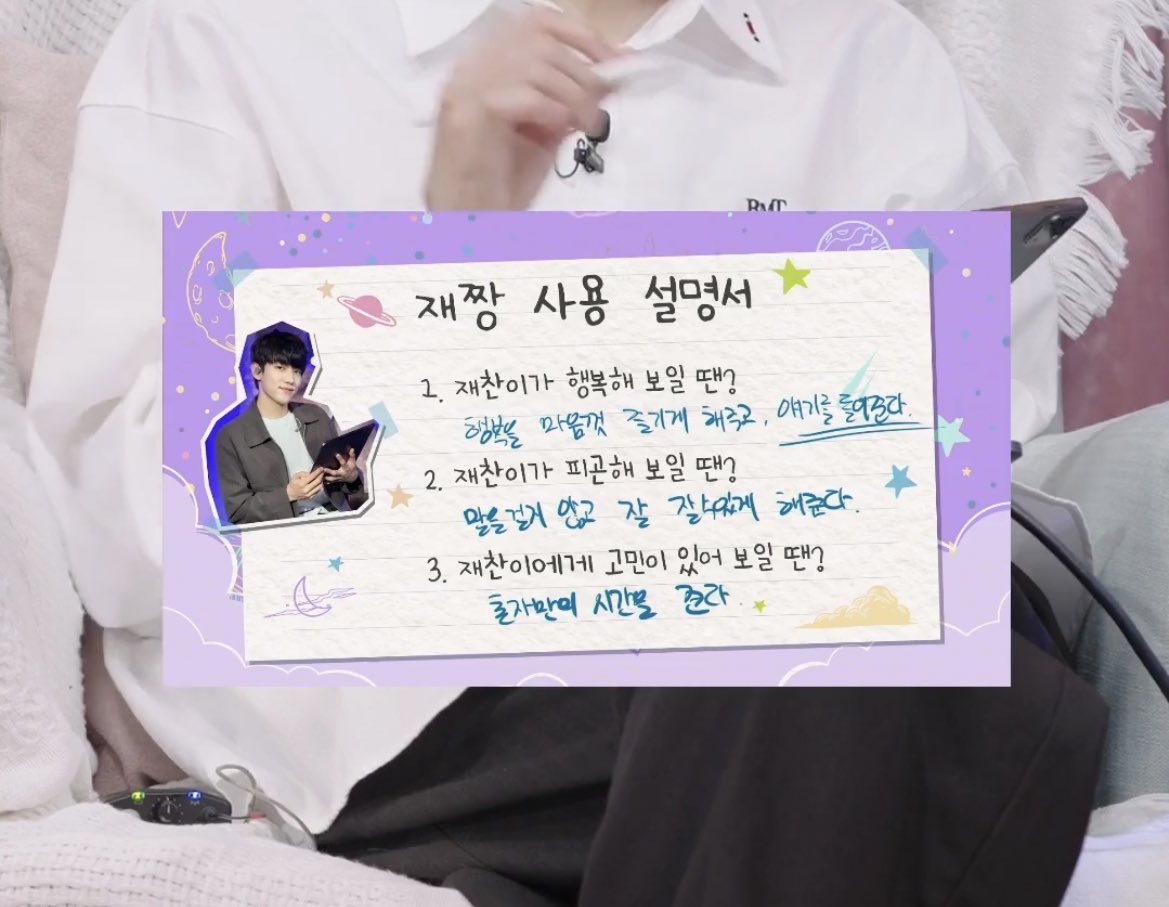 RMT
재짱 사용 설명서
1. 재찬이가 행복해 보일 땐?
행복을 마음껏 즐기게 해주고, 얘기를 들어준다.
2. 재찬이가 피곤해 보일 땐?
말을 걸지 않고 잘 잘 수 있게 해준다.
3. 재찬이에게 고민이 있어 보일 땐?
혼자만의 시간을 준다.